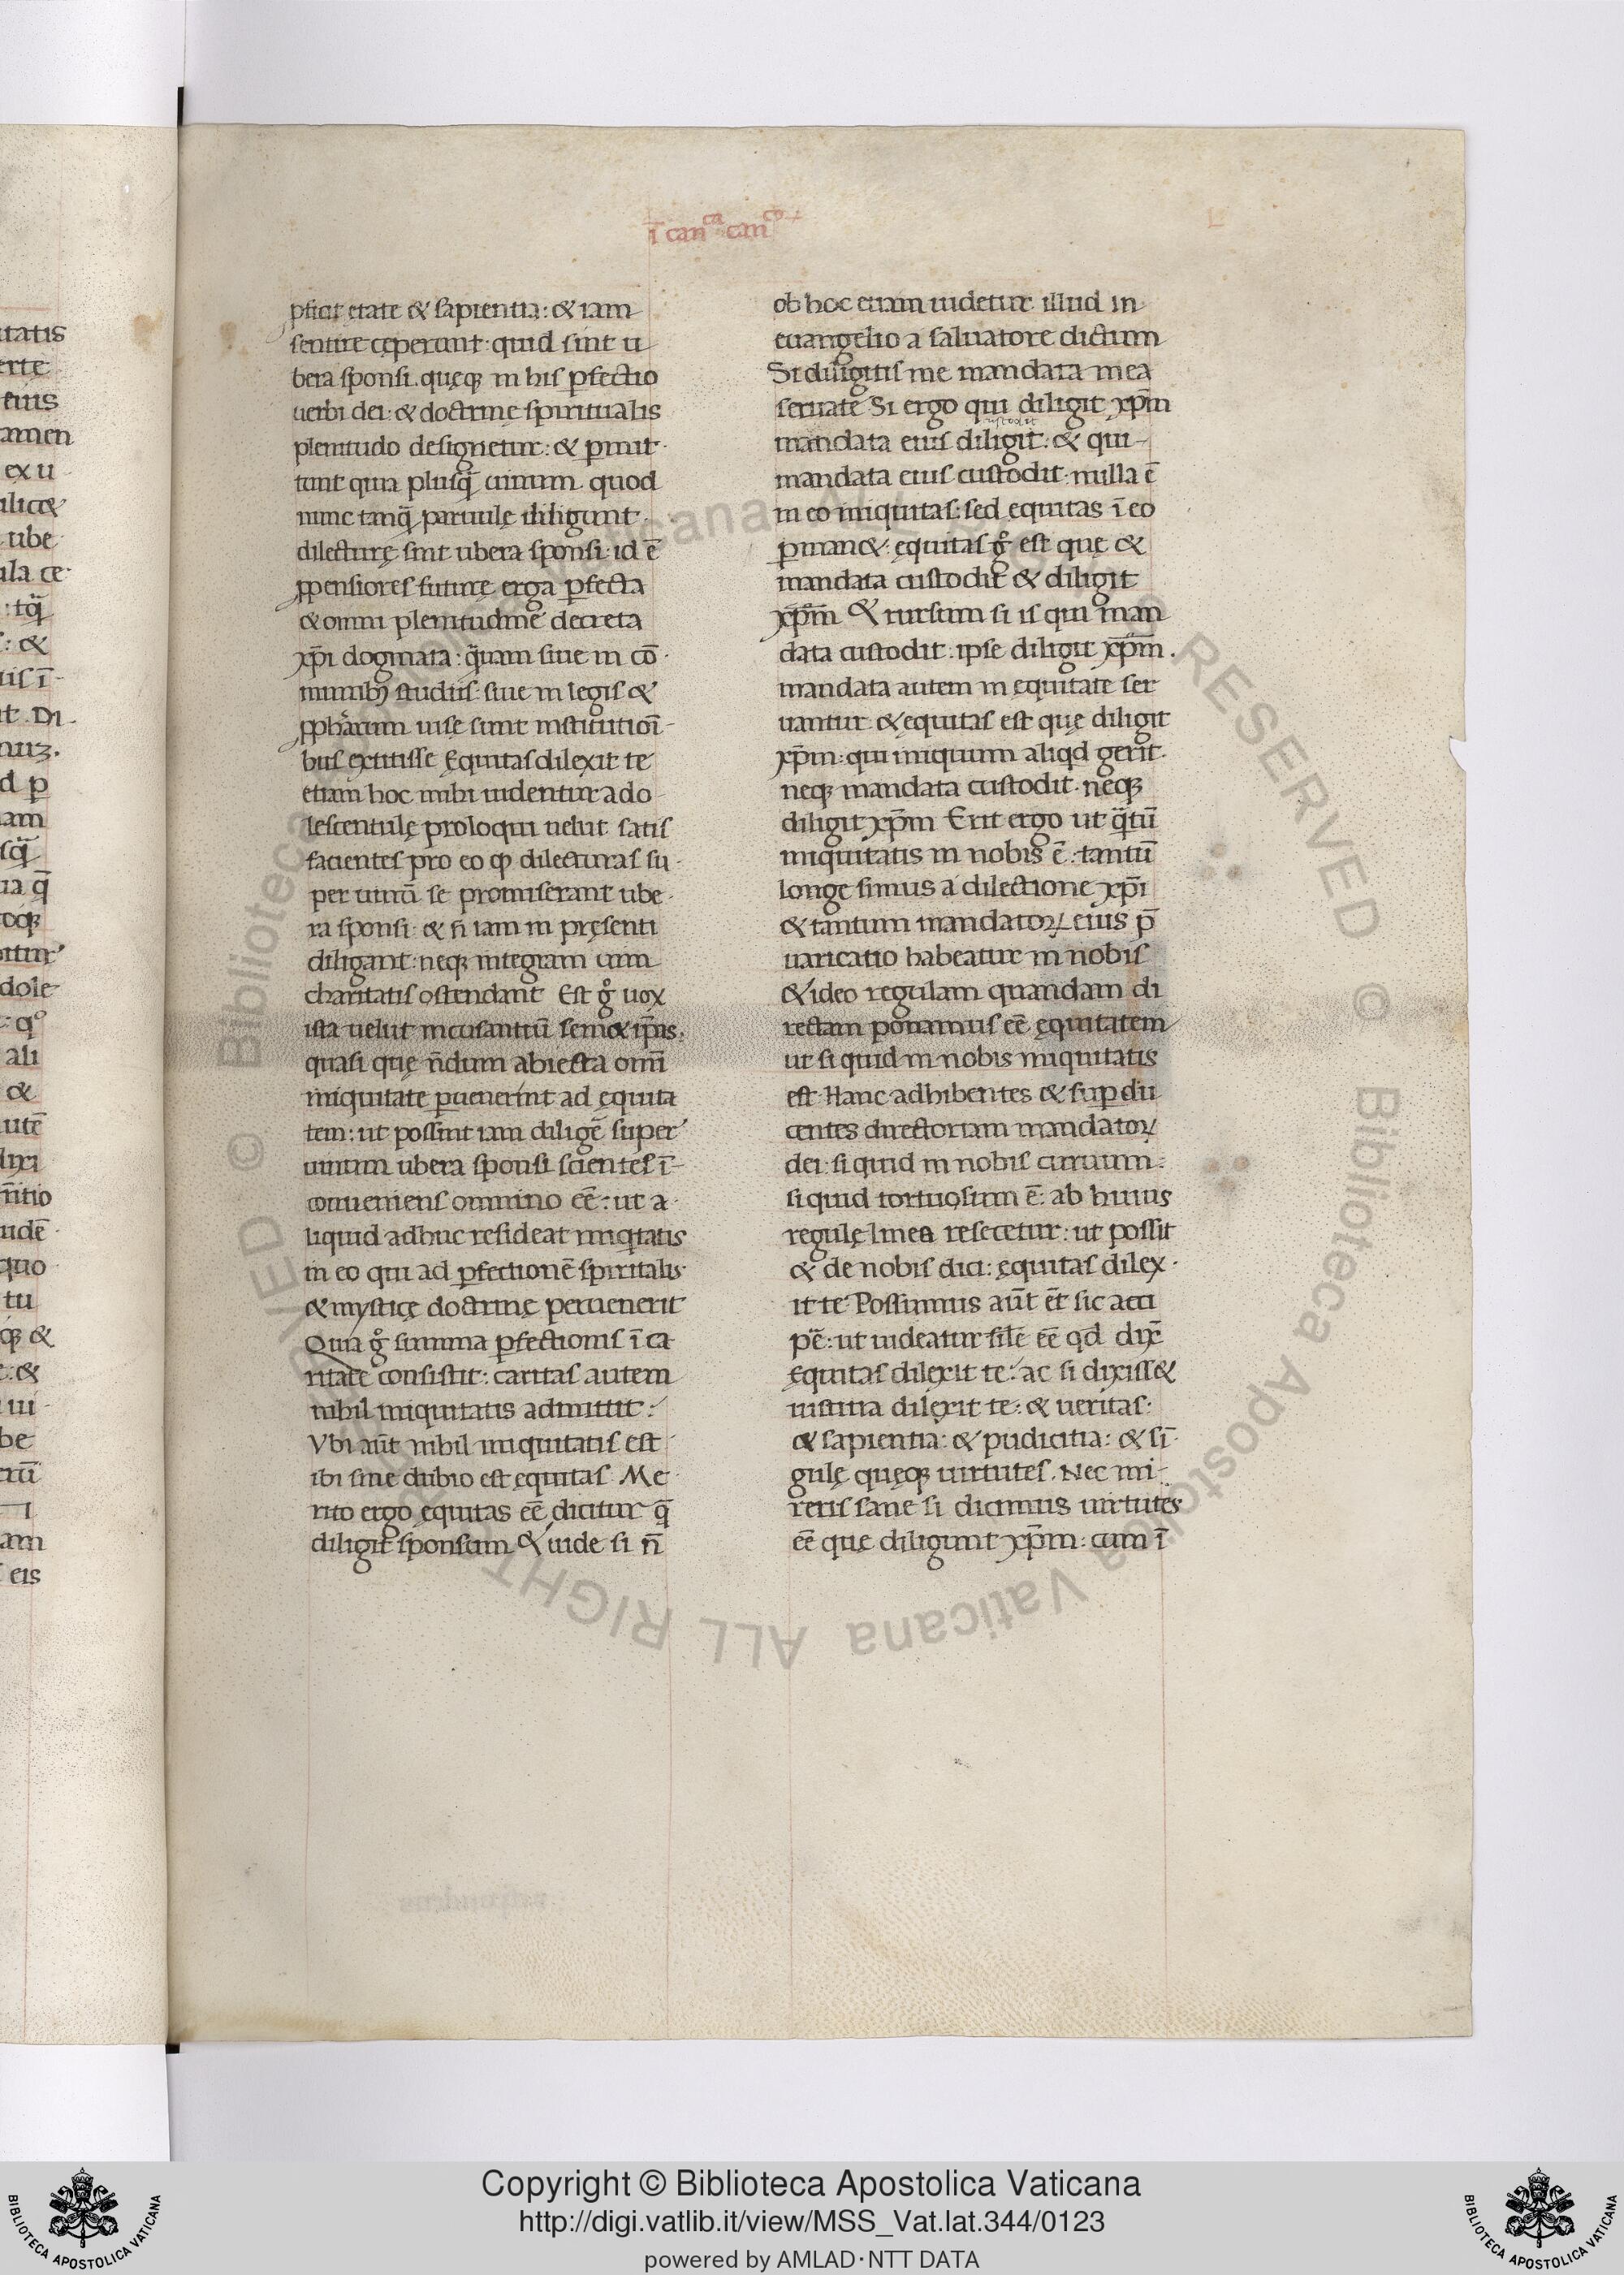 ī can^ca can^co
pficit ętate & sapientia: & iam
sentire cęperunt: quid sint u
bera sponsi. quęq; in his pfectio
uerbi dei: & doctrinę spiritualis
plenitudo designetur: & pmit
tunt quia plusq̄ uinum quod
nunc tanq̄ paruulę diligunt
dilecturę sint ubera sponsi: id ē
ppensiores futurę erga pfecta
& omni plenitudine decreta
xp̄i dogmata: quam siue in cō
munib; studiis: siue in legis &
pphetarum uisę sunt institutiōi
bus extitisse Equitas dilexit te
etiam hoc mihi uidentur ado
lescentulę proloqui uelut satis
facientes pro eo qꝫ dilecturas su
per uinū se promiserant ube
ra sponsi: & ñ iam in pręsenti
diligant: neq; integram uim
charitatis ostendant Est g̊ uox
ista uelut incusantiū sem& ip̄as.
quasi quę ñdum abiecta omī
iniquitate puenerint ad ęquita
tem: ut possint iam diligē super
uinum ubera sponsi scientes ī
conueniens omnino eē: ut a
liquid adhuc resideat iniqtatis
in eo qui ad pfectionē spiritalis
& mysticę doctrinę peruenerit
Quia g̊ summa pfectionis ī ca
ritate consistit: caritas autem
nihil iniquitatis admittit:
Vbi aūt nihil iniquitatis est
ibi sine dubio est ęquitas. Me
rito ergo ęquitas eē dicitur q̄
diligit sponsum & uide si ñ
ob hoc etiam uidetur illud in
euangelio a saluatore dictum
Si diligitis me mandata mea
seruate Si ergo qui diligit xp̄m
custodit
mandata eius diligit: & qui
mandata eius custodit: nulla ē
in eo iniquitas: sed ęquitas ī eo
pman&: ęquitas g̊ est quę &
mandata custodit & diligit
xp̄m & rursum si is qui man
data custodit: ipse diligit xp̄m.
mandata autem in ęquitate ser
uantur & ęquitas est quę diligit
xp̄m: qui iniquum aliqd gerit
neq; mandata custodit. neq;
diligit xp̄m Erit ergo ut q̄tū
iniquitatis in nobis ē: tantū
longe simus a dilectione xp̄i
& tantum mandatoꝝ eius p̄
uaricatio habeatur in nobis
& ideo regulam quandam di
rectam ponamus eē ęquitatem
ut si quid in nobis iniquitatis
est Hanc adhibentes & supdu
centes directoriam mandatoꝝ
dei: si quid in nobis curuum:
si quid tortuosum ē: ab huius
regulę linea resecetur: ut possit
& de nobis dici: ęquitas dilex
it te Possumus aūt ēt sic acci
pē: ut uideatur silē eē qd dix̄
ęquitas dilexit te: ac si dixiss&
iustitia dilexit te: & ueritas:
& sapientia: & pudicitia: & sī
gulę quęq; uirtutes. Nec mi
reris sane si dicimus uirtutes
eē que diligunt xp̄m: cum ī
Copyright © Biblioteca Apostolica Vaticana
http://digi.vatlib.it/view/MSS_Vat.lat.344/0123
powered by AMLAD·NTT DATA